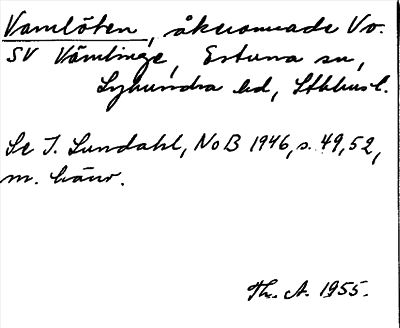 Vamlöten, åkeromrade V o.
SV Vämlinge, Estuna sn,
Lyhundra hd, Sthlms l.
Se I. Lundahl, NoB 1946, s. 49, 52,
m. hänv.
Th. A. 1955.